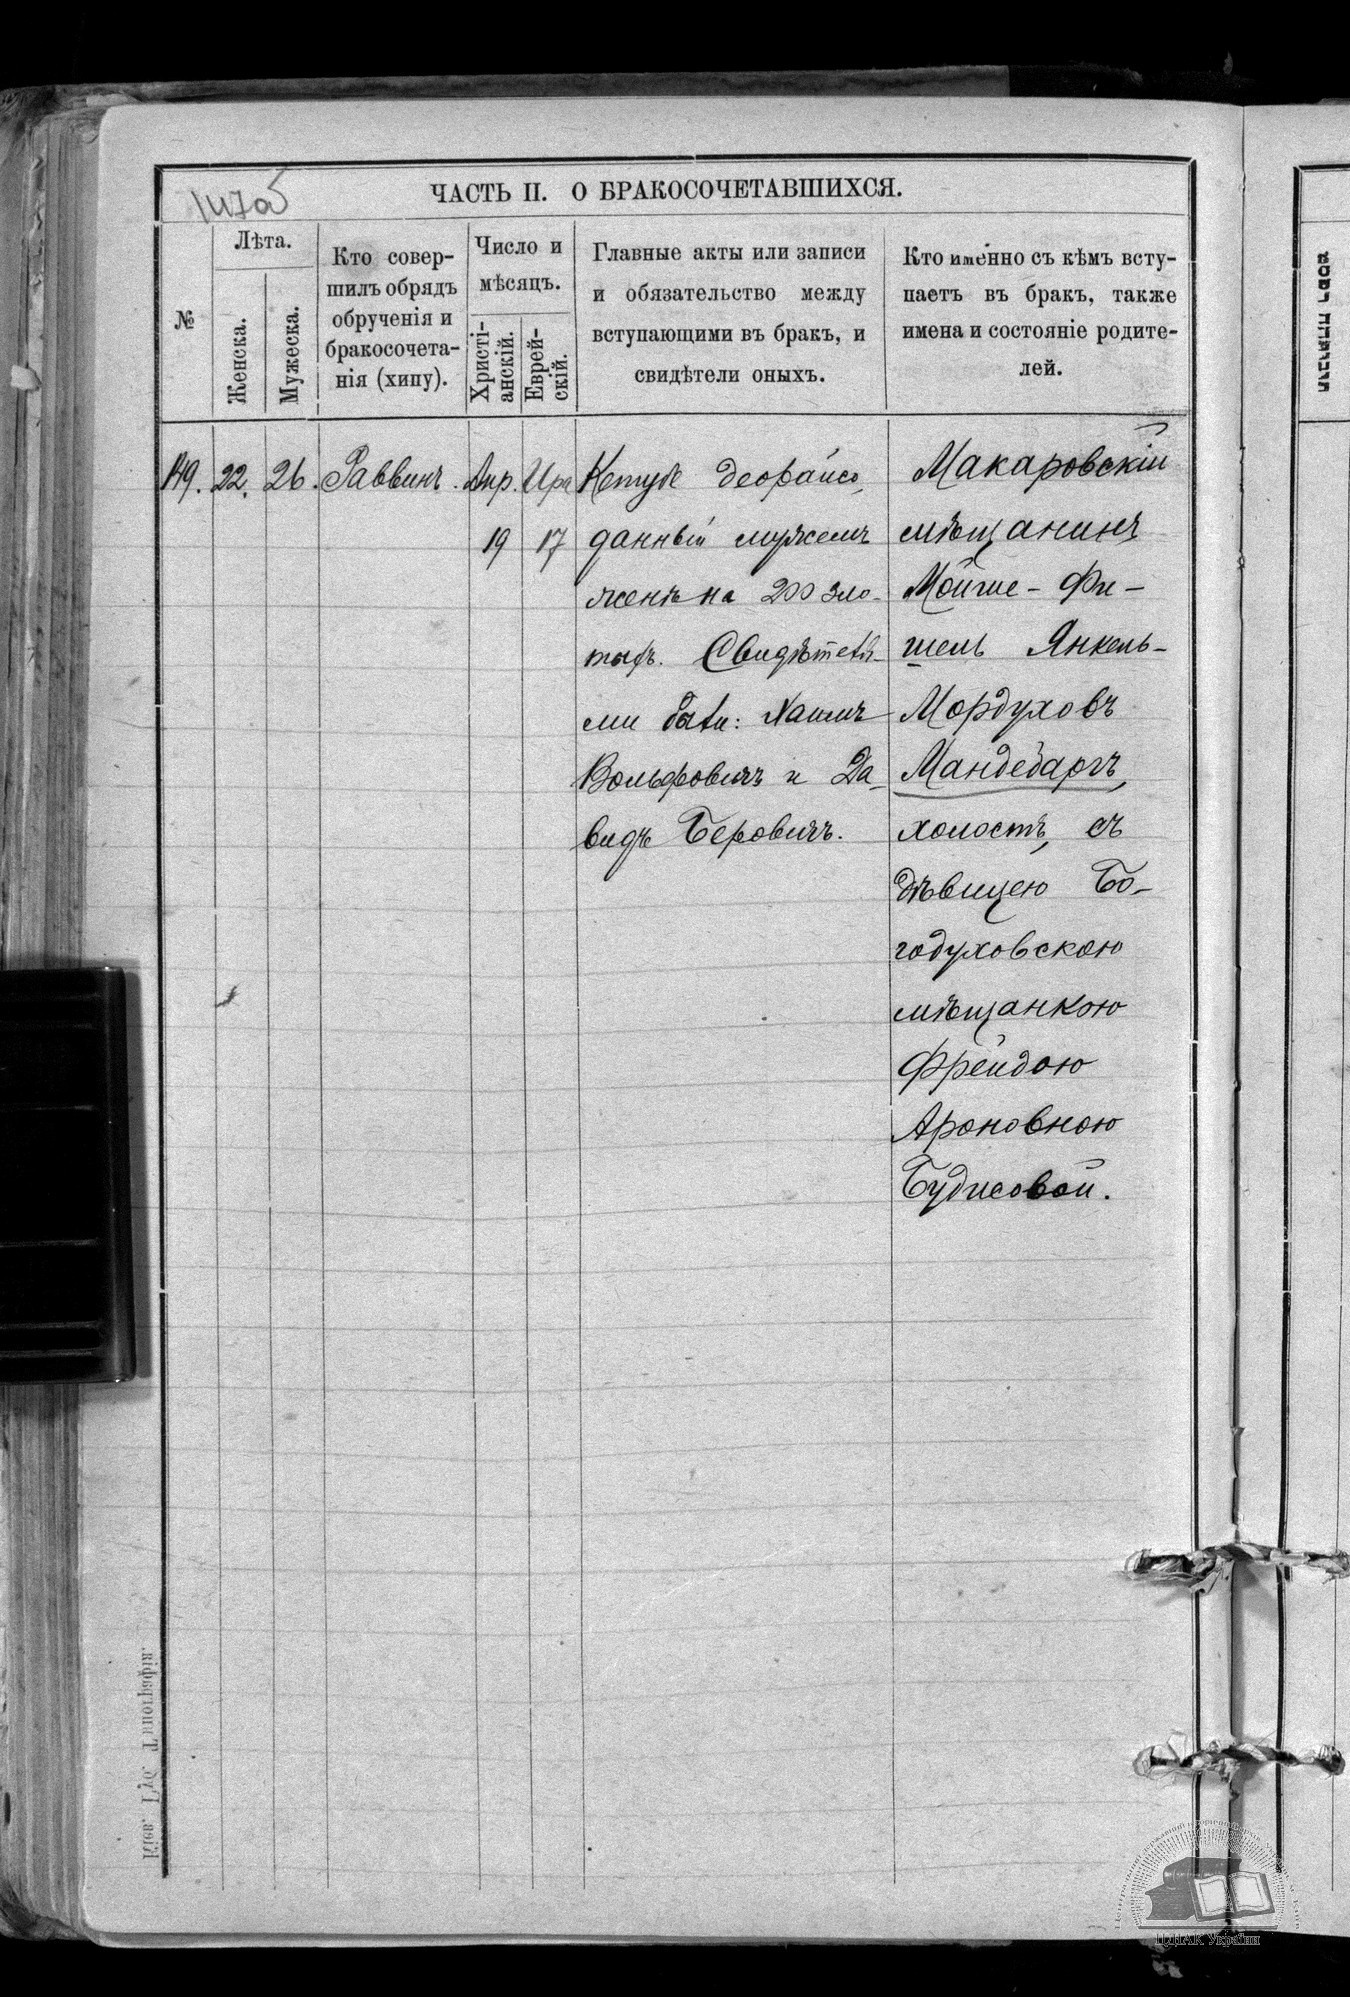 147об
ЧАСТЬ II. О БРАКОСОЧЕТАВШИХСЯ.
№
Лѣта.
Женска.
Мужеска.
Кто совер-
шилъ обрядъ
обрученія и
бракосочета-
нія (хипу).
Число и
мѣсяцъ.
Христі-
анскій.
Еврей-
скій.
Главные акты или записи
и обязательство между
вступающими въ бракъ, и
свидѣтели оныхъ.
Кто именно съ кѣмъ всту-
паетъ въ бракъ, также
имена и состояніе родите-
лей.
149.
22.
26.
Раввинъ.
Апр.
19
Ира
17
Кетубе деорайсо,
данный мужемъ
женѣ на 200 зло-
тыхъ. Свидѣтеля-
ми были: Хаимъ
Вольфовичъ и Да-
видъ Беровичъ.
Макаровскій
мѣщанинъ
Мойше-Фи-
шель Янкель-
Мордуховъ
Мандебаргъ,
холостъ, съ
дѣвицею Бо-
годуховскою
мѣщанкою
Фрейдою
Ароновною
Будисовой.
Кіев. Губ. Типографія.
ЦДІАК України